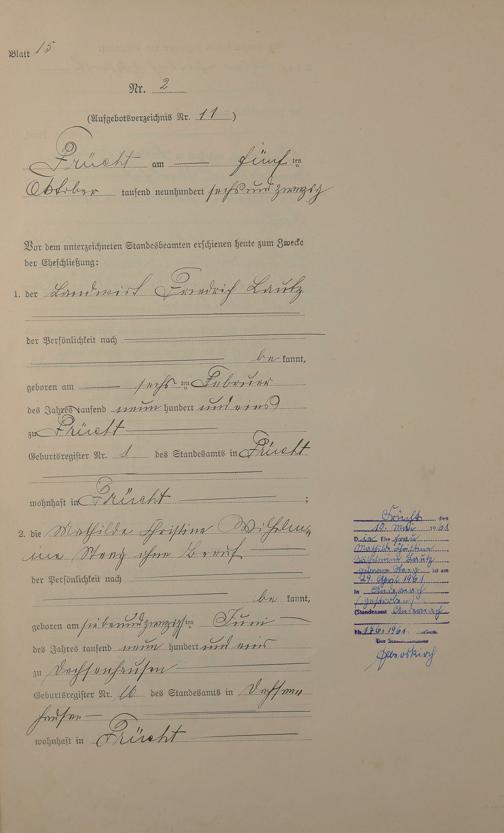 Blatt 15
Nr. 2
(Aufgebotsverzeichnis Nr. 11)
Frücht am — fünften
Oktober tausend neunhundert sechsundzwanzig
Vor dem unterzeichneten Standesbeamten erschienen heute zum Zwecke
der Eheschließung:
1. der Landwirt Friedrich Lautz
der Persönlichkeit nach
be kannt,
geboren am — sechsten Februar
des Jahres tausend neun hundert und eins
zu Frücht
Geburtsregister Nr. 1 des Standesamts in Frücht
wohnhaft in Frücht ;
2. die Mathilde Christine Wilhelmi-
ne Steeg ohne Beruf
der Persönlichkeit nach
be kannt,
geboren am siebenundzwanzigsten Juni —
des Jahres tausend neun hundert und eins
zu Dachsenhausen
Geburtsregister Nr. des Standesamts in Dachsen-
hausen —
wohnhaft in Frücht
Frücht den
10. Mai 1961
Die Ehefrau
Mathilde Christine
Wilhelmine Lautz
geborene Steeg ist am
29. April 1961
in
gestorben
(Standesamt
Nr. 176/1961.
Der Standesbeamte